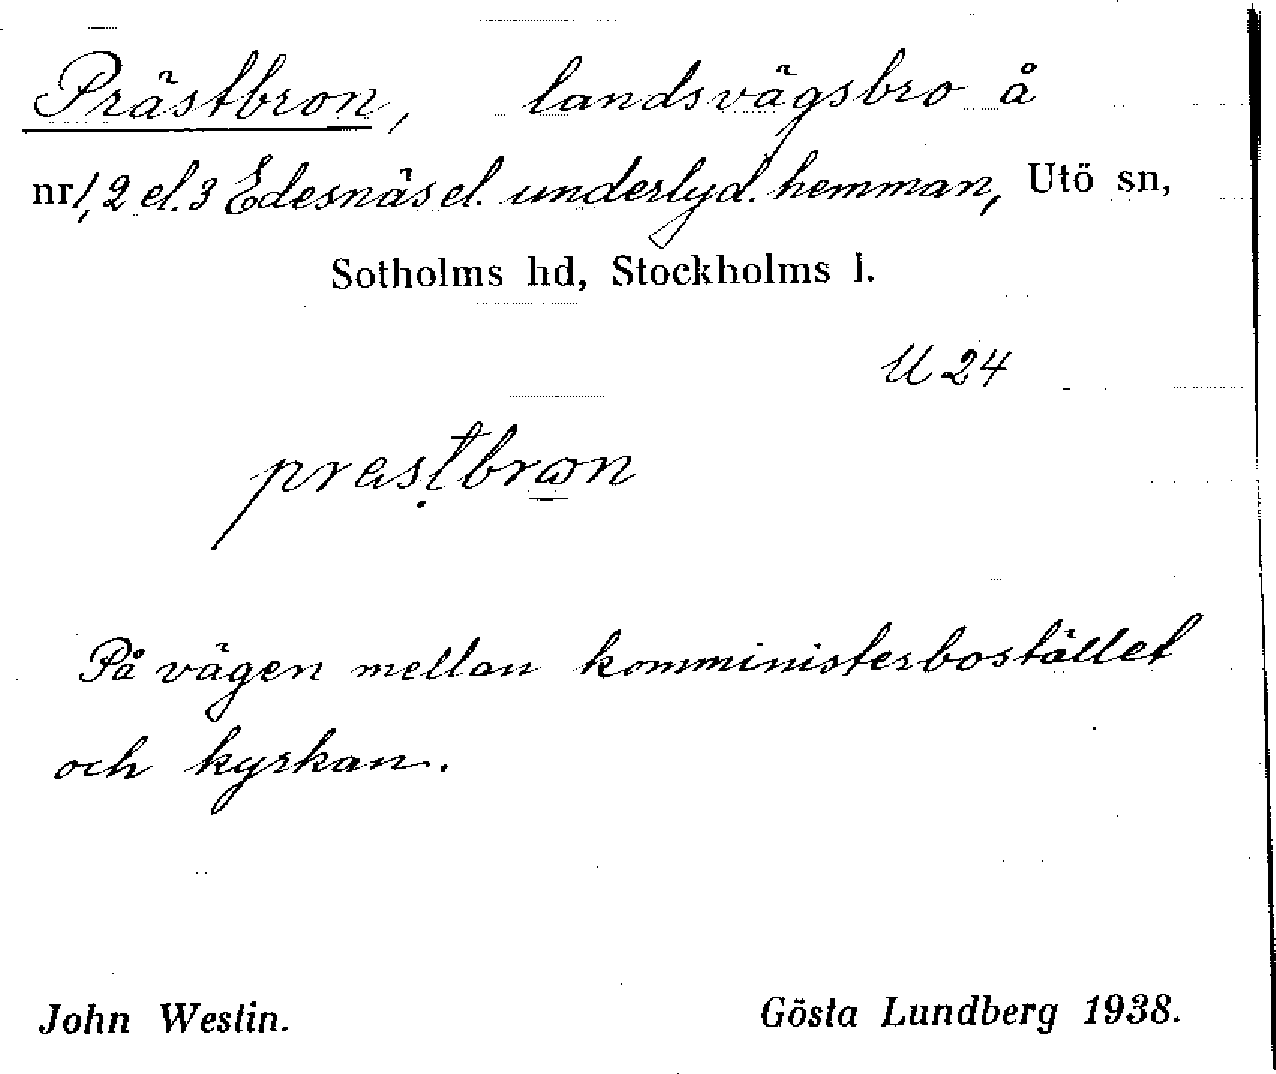 Prästbron, landsvägsbro å
nr 1, 2 el. 3 Edesnäs el. underlyd. hemman, Utö sn,
Sotholms hd, Stockholms l.
U 24
prasṭbrꙍn
På vägen mellan komministerbostället
och kyrkan.
John Westin. Gösta Lundberg 1938.